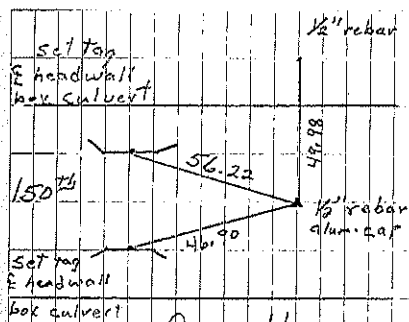 1/2" rebar
set tag
℄ headwall
box culvert
49.98
56.22
150th
1/2" rebar
alum. cap
46.90
set tag
℄ headwall
box culvert